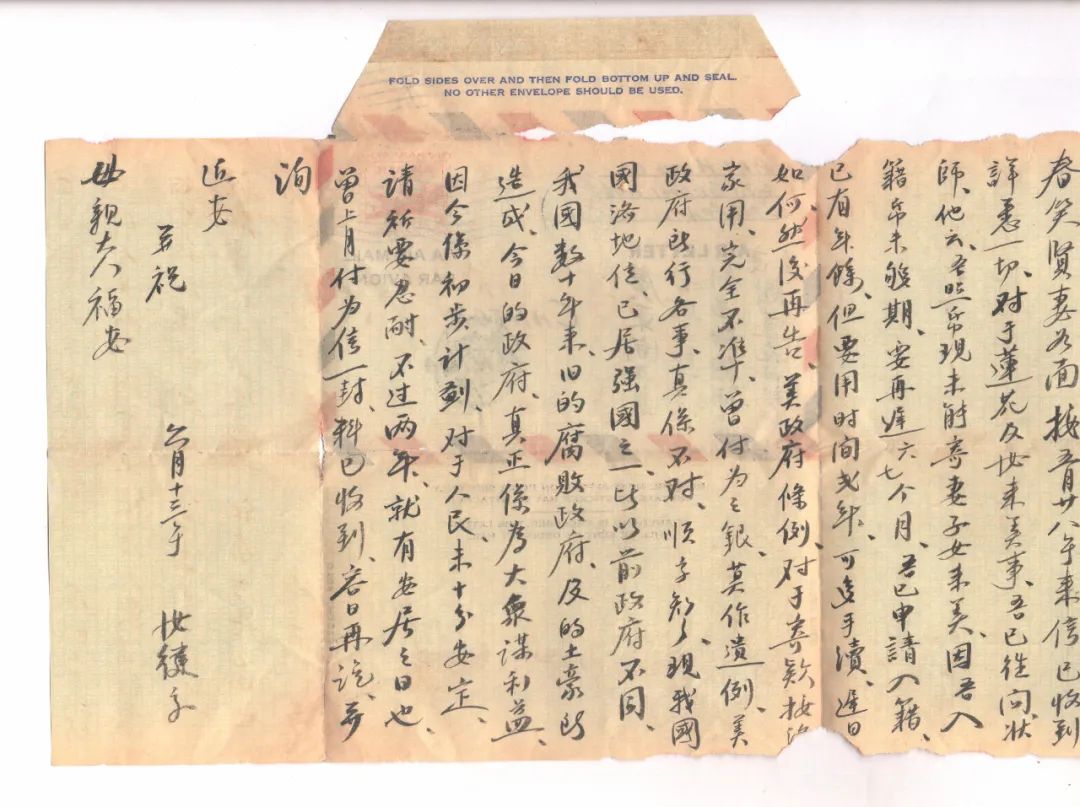 FOLD SIDES OVER AND THEN FOLD BOTTOM UP AND SEAL.
NO OTHER ENVELOPE SHOULD BE USED.
春笑贤妻如面 接五月廿八午来信已收到
詳悉一切、对于蓮花及女来美事、吾已往问状
师、他云、吾照帋现未能寄妻子女来美、因吾入
籍帋未够期、要再遅六七个月、吾已申請入籍、
已有年餘、但要用时间弍年、可造手續、遅日
如何、然後再告、美政府條例、对于寄欵接济
家用、完全不准、曾付为之银、莫作违例、美
政府所行各事、真係不对、顺字知之、现我國
國洛地位、已居强國之一、比以前政府不同、
我國数十年来、旧的腐败政府、及的土豪所
造成、今日的政府、真正係為大衆谋利益、
因今係初步计劃、对于人民、未十分安定、
請暂要忍耐、不过两年、就有安居之日也、
曾上月付为信一封、料已收到、容日再说、并
询
近安
并祝
母親大人福安
六月十三午